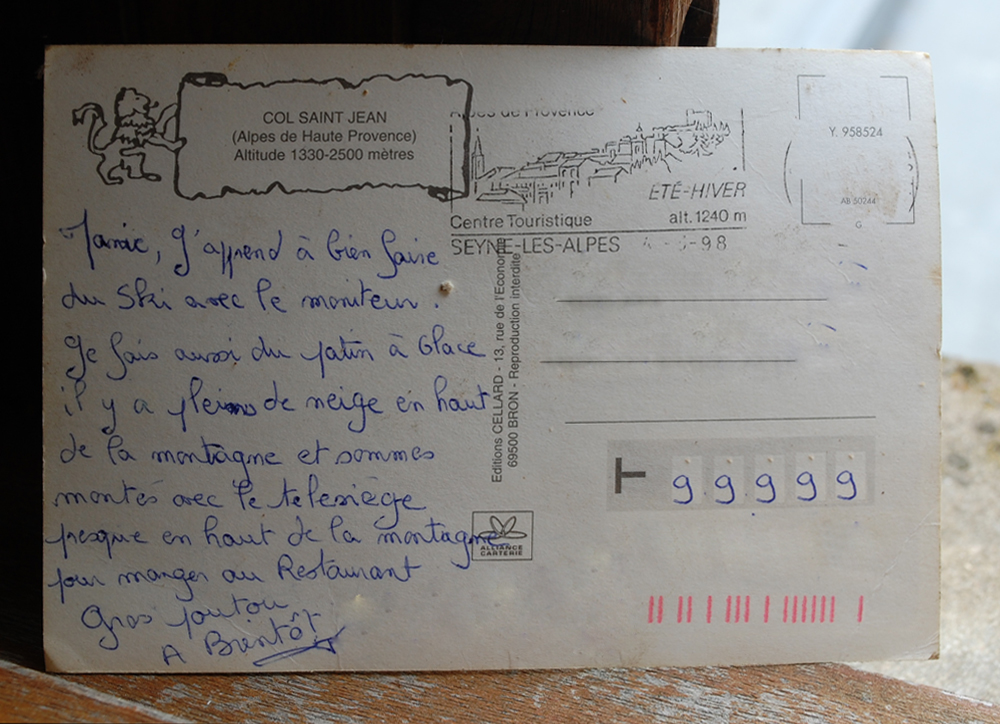 COL SAINT JEAN
(Alpes de Haute Provence)
Altitude 1330-2500 mètres
Alpes de Provence
ÉTÉ-HIVER
Centre Touristique alt. 1240 m
SEYNE-LES-ALPES -98
Y. 958524
AB 50244
G
J'apprend à bien faire
du Ski avec le moniteur.
Je fais aussi du patin à Glace
il y a pleins de neige en haut
de la montagne et sommes
montés avec le telesiège
presque en haut de la montagne
pour manger au Restaurant
Gros poutou
A Bientôt
Editions CELLARD - 13, rue de l'Economie
69500 BRON - Reproduction interdite
T 99999
ALLIANCE
CARTERIE